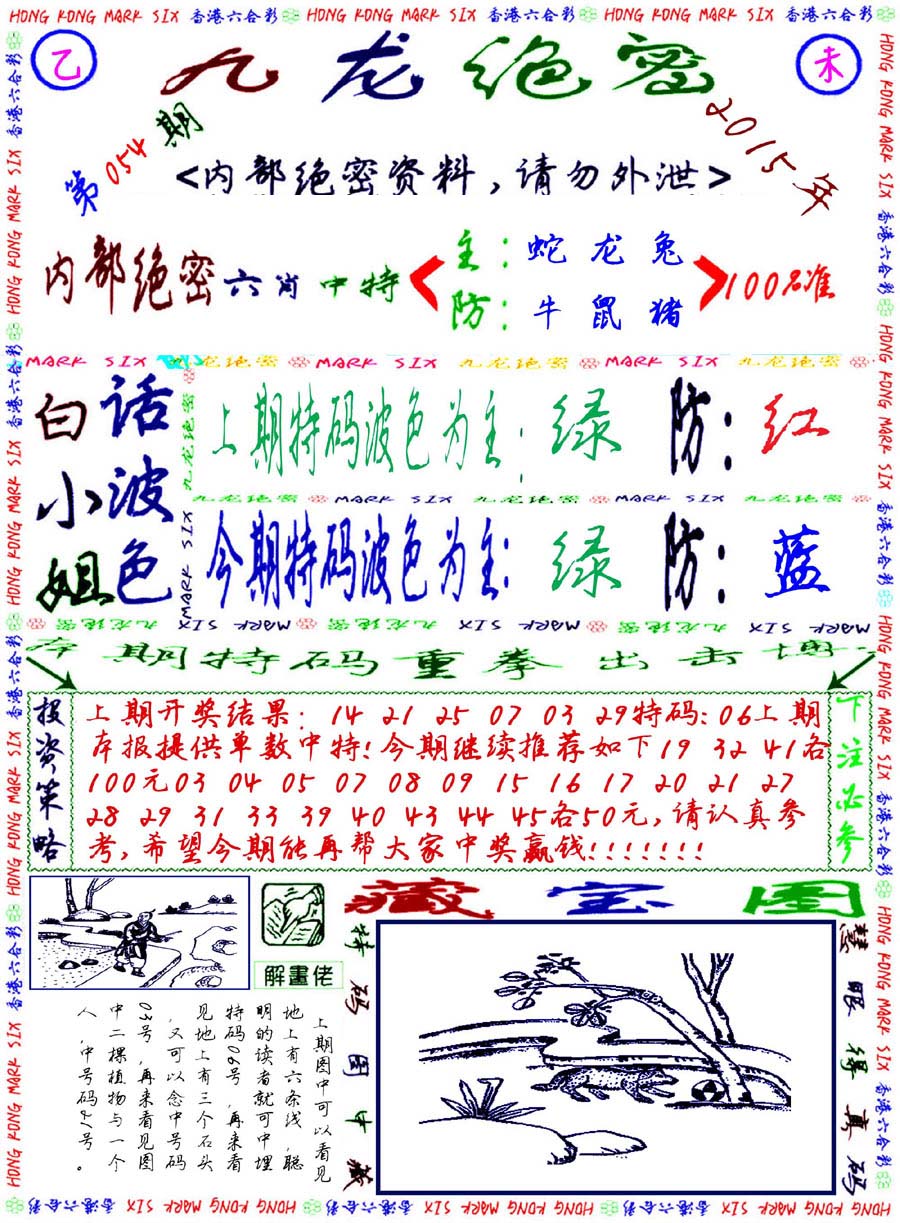 HONG KONG MARK SIX 香港六合彩 HONG KONG MARK SIX 香港六合彩 HONG KONG MARK SIX 香港六合彩
乙
九龙绝密
未
第054期
2015年
<内部绝密资料,请勿外泄>
内部绝密六肖中特
主:蛇龙兔
防:牛鼠猪
100%准
MARK SIX 九龙绝密 MARK SIX 九龙绝密 MARK SIX 九龙绝密
白话
小波
姐色
上期特码波色为主:绿 防:红
九龙绝密 MARK SIX 九龙绝密 MARK SIX 九龙绝密
今期特码波色为主:绿 防:蓝
九龙绝密 MARK SIX 九龙绝密 MARK SIX 九龙绝密 MARK SIX
本期特码重拳出击博
投资策略
上期开奖结果: 14 21 25 07 03 29特码:06上期
本报提供单数中特!今期继续推荐如下19 32 41各
100元03 04 05 07 08 09 15 16 17 20 21 27
28 29 31 33 39 40 43 44 45各50元,请认真参
考,希望今期能再帮大家中奖赢钱!!!!!!!
下注必参
解畫佬
藏宝图
特码图中藏
慧眼得真码
上期图中可以看见
地上有六条线,聪
明的读者就可中埋
特码06号,再来看
见地上有三个石头
,又可以念中号码
03号,再来看见图
中二棵植物与一个
人,中号码21号。
HONG KONG MARK SIX 香港六合彩 HONG KONG MARK SIX 香港六合彩 HONG KONG MARK SIX 香港六合彩